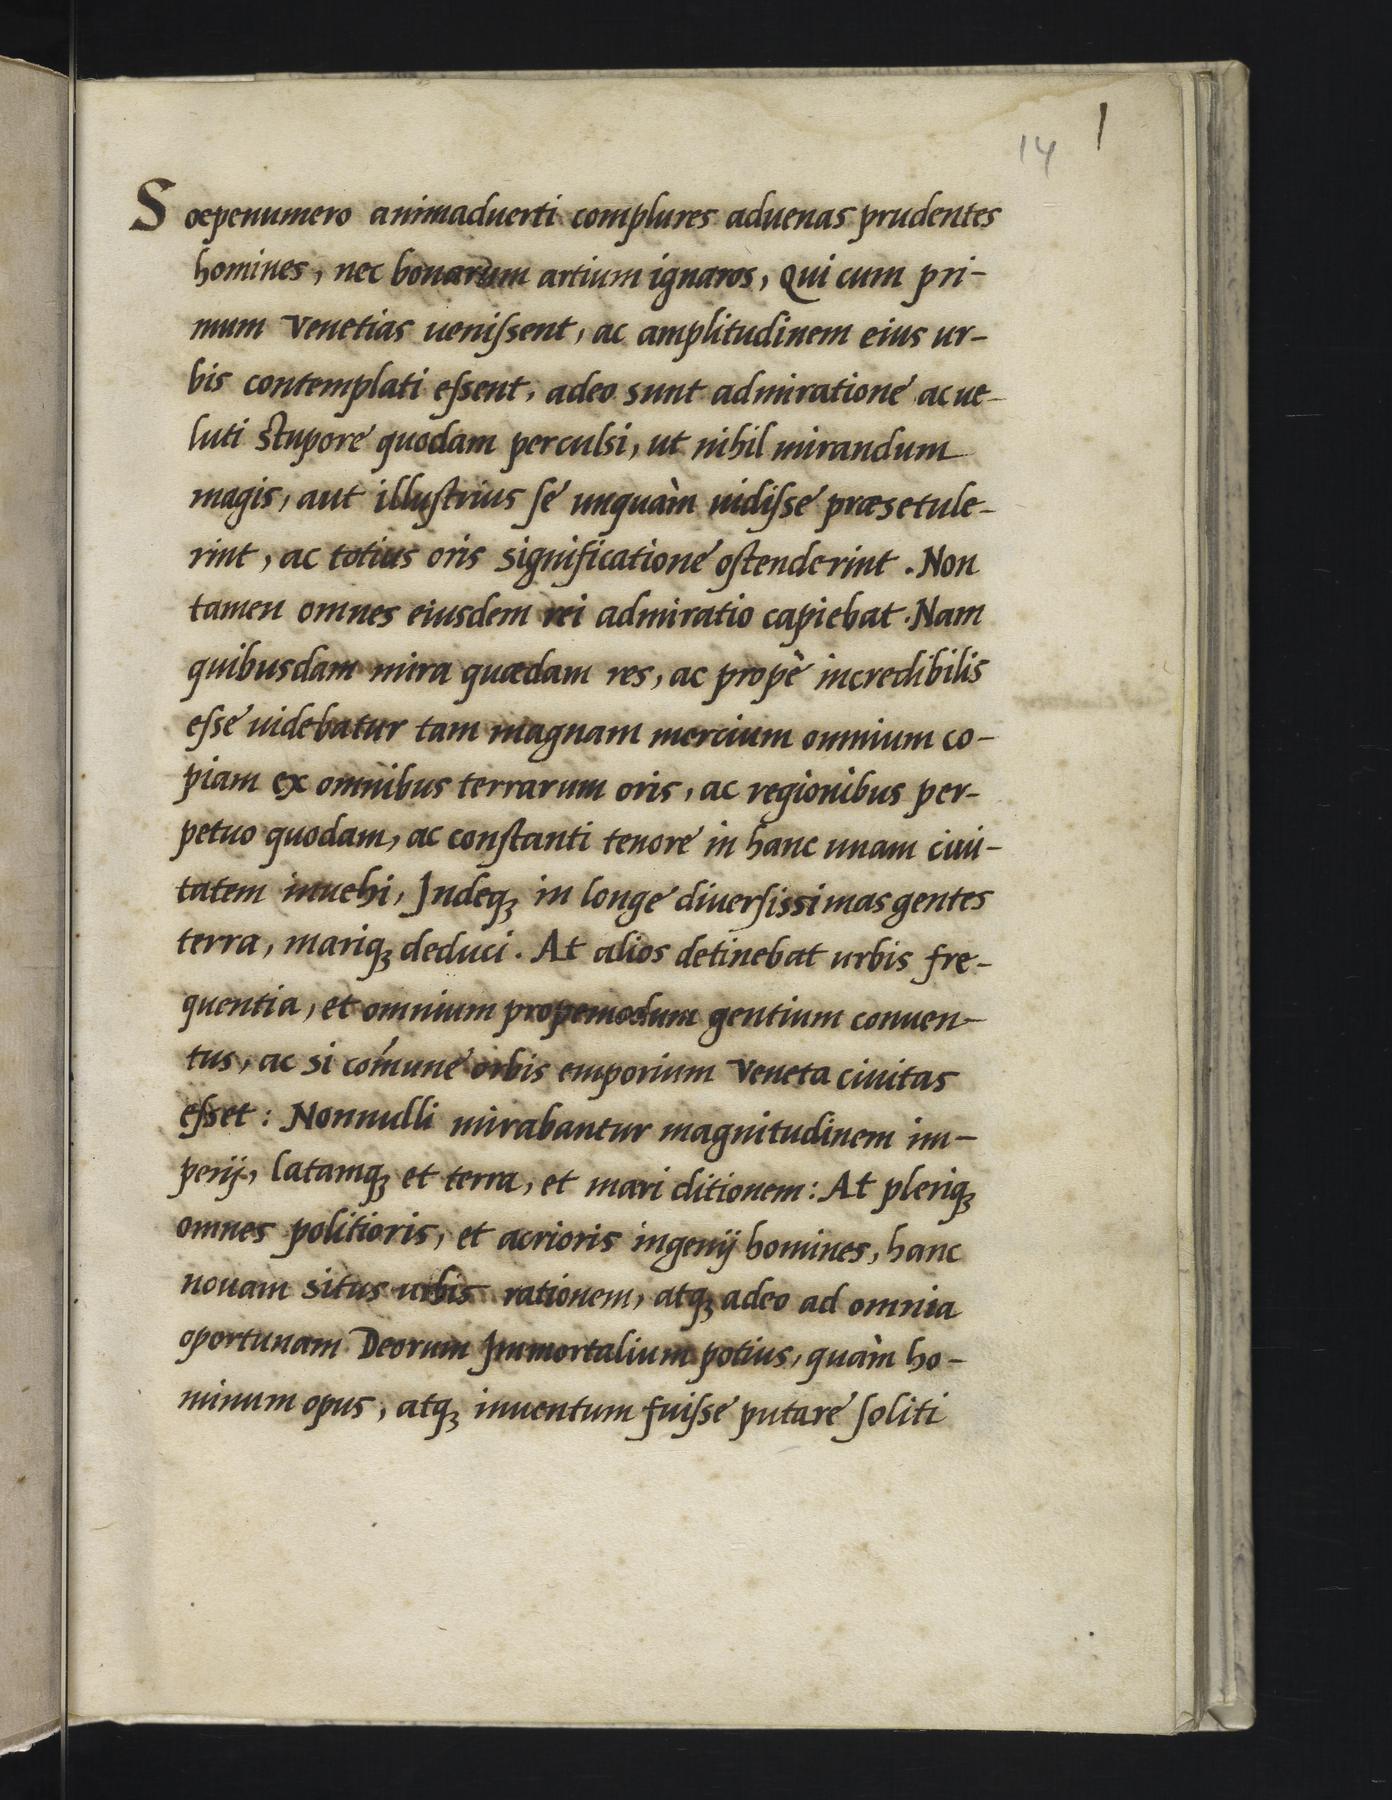 14 1
Soepenumero animaduerti complures aduenas prudentes
homines, nec bonarum artium ignaros, Qui cum pri-
mum Venetias uenißent, ac amplitudinem eius ur-
bis contemplati eßent, adeo sunt admiratione ac ue-
luti stupore quodam perculsi, ut nihil mirandum
magis, aut illustrius se unquàm uidiße præsetule-
rint, ac totius oris significatione ostenderint. Non
tamen omnes eiusdem rei admiratio capiebat. Nam
quibusdam mira quædam res, ac propè incredibilis
eße uidebatur tam magnam mercium omnium co-
piam ex omnibus terrarum oris, ac regionibus per-
petuo quodam, ac constanti tenore in hanc unam ciui-
tatem inuehi, Indeq; in longe diuersissimas gentes
terra, mariq; deduci. At alios detinebat urbis fre-
quentia, et omnium propemodum gentium conuen-
tus, ac si com̃une orbis emporium Veneta ciuitas
eßet: Nonnulli mirabantur magnitudinem im-
perij, latamq; et terra, et mari ditionem: At pleriq;
omnes politioris, et acrioris ingenij homines, hanc
nouam situs urbis rationem, atq; adeo ad omnia
oportunam Deorum Immortalium potius, quàm ho-
minum opus, atq; inuentum fuiße putare soliti